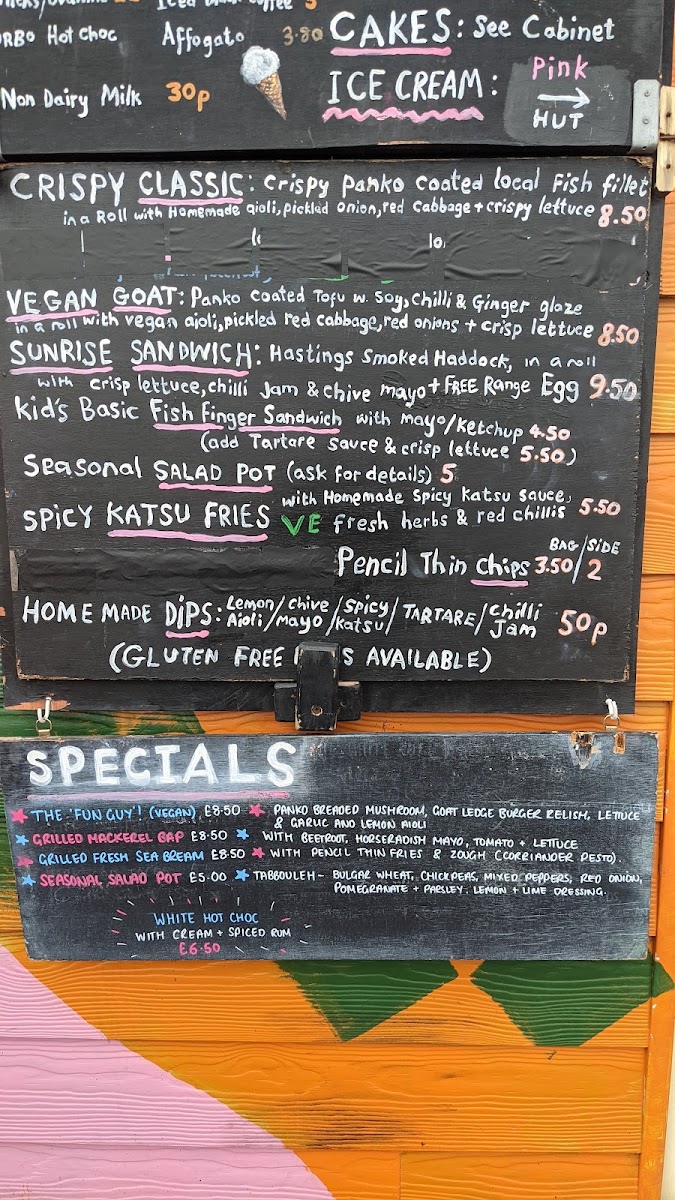 Iced black coffee 3
Hot Choc Affogato 3.80 CAKES: See Cabinet
Non Dairy Milk 30p ICE CREAM: Pink
HUT
CRISPY CLASSIC: Crispy panko coated local fish fillet
in a Roll with Homemade aioli, pickled onion, red cabbage + crispy lettuce 8.50
VEGAN GOAT: Panko coated Tofu w. Soy, chilli & Ginger glaze
in a roll with vegan aioli, pickled red cabbage, red onions + crisp lettuce 8.50
SUNRISE SANDWICH: Hastings Smoked Haddock, in a roll
with crisp lettuce, chilli Jam & chive mayo + FREE Range Egg 9.50
Kid's Basic Fish finger Sandwich with mayo/Ketchup 4.50
(add Tartare sauce & crisp lettuce 5.50)
Seasonal SALAD POT (ask for details) 5
SPICY KATSU FRIES VE with Homemade Spicy Katsu sauce,
fresh herbs & red chillis 5.50
Pencil Thin Chips BAG/SIDE 3.50/2
HOMEMADE DIPS: Lemon Aioli/Chive Mayo/Spicy Katsu/TARTARE/Chilli Jam 50p
(GLUTEN FREE S AVAILABLE)
SPECIALS
THE 'FUN GUY'! (VEGAN) £8.50 PANKO BREADED MUSHROOM, GOAT LEDGE BURGER RELISH, LETTUCE
& GARLIC AND LEMON AIOLI
GRILLED MACKEREL BAP £8.50 WITH BEETROOT, HORSERADISH MAYO, TOMATO + LETTUCE
GRILLED FRESH SEA BREAM £8.50 WITH PENCIL THIN FRIES & ZOUGH (CORRIANDER PESTO).
SEASONAL SALAD POT £5.00 TABBOULEH - BULGAR WHEAT, CHICKPEAS, MIXED PEPPERS, RED ONION,
POMEGRANATE + PARSLEY. LEMON + LIME DRESSING.
WHITE HOT CHOC
WITH CREAM + SPICED RUM
£6.50